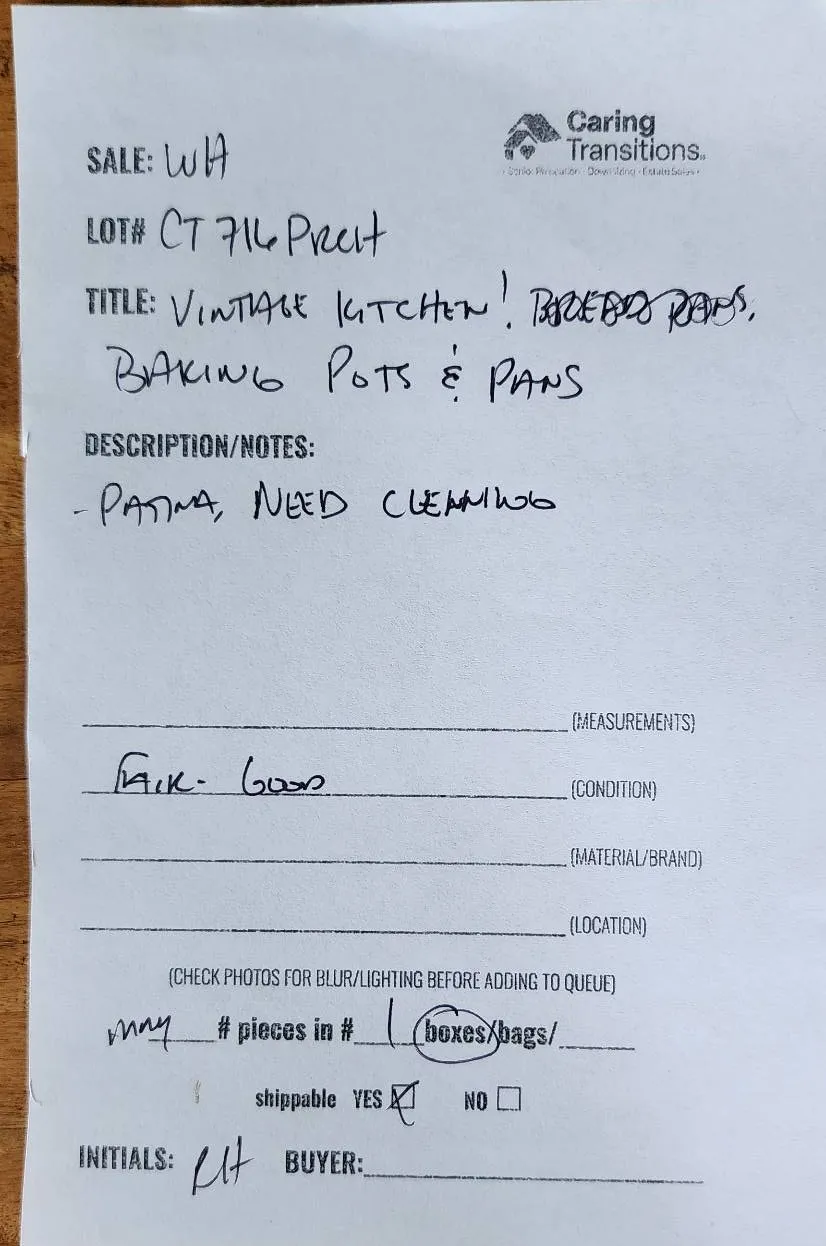 Caring
Transitions
SALE: WH
LOT# CT 716 PRCH
TITLE: VINTAGE KITCHEN!
BAKING POTS & PANS
DESCRIPTION/NOTES:
- PATINA, NEED CLEANING
(MEASUREMENTS)
FAIR - GOOD (CONDITION)
(MATERIAL/BRAND)
(LOCATION)
(CHECK PHOTOS FOR BLUR/LIGHTING BEFORE ADDING TO QUEUE)
# pieces in # 1 boxes/bags/
shippable YES NO
INITIALS: RH BUYER: